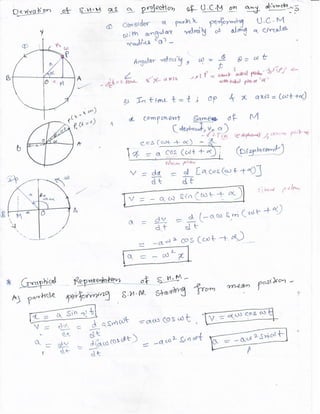 Derivation of S.H.M as a projection of U.C.M on any diameter
① Consider a particle performing U.C.M
with angular velocity ω along a circular
radius 'a'
Angular velocity, ω = θ/t θ = ωt
② In time t = t, OP & x axis = (ωt+α)
x component of M
cos(ωt + α) = x/a
x = a cos(ωt + α) (Displacement)
V = dx/dt = d/dt [a cos(ωt + α)]
V = - aω sin(ωt + α)
a = dv/dt = d/dt (-aω sin(ωt + α))
= - aω² cos(ωt + α)
a = - ω² x
* Graphical Representation of S.H.M -
As particle performing S.H.M starting from mean position -
x = a sin ωt
V = dx/dt = d/dt a sin ωt = aω cos ωt. V = aω cos ωt
a = dv/dt = d(aω cos ωt)/dt = -aω² sin ωt a = -aω² sin ωt